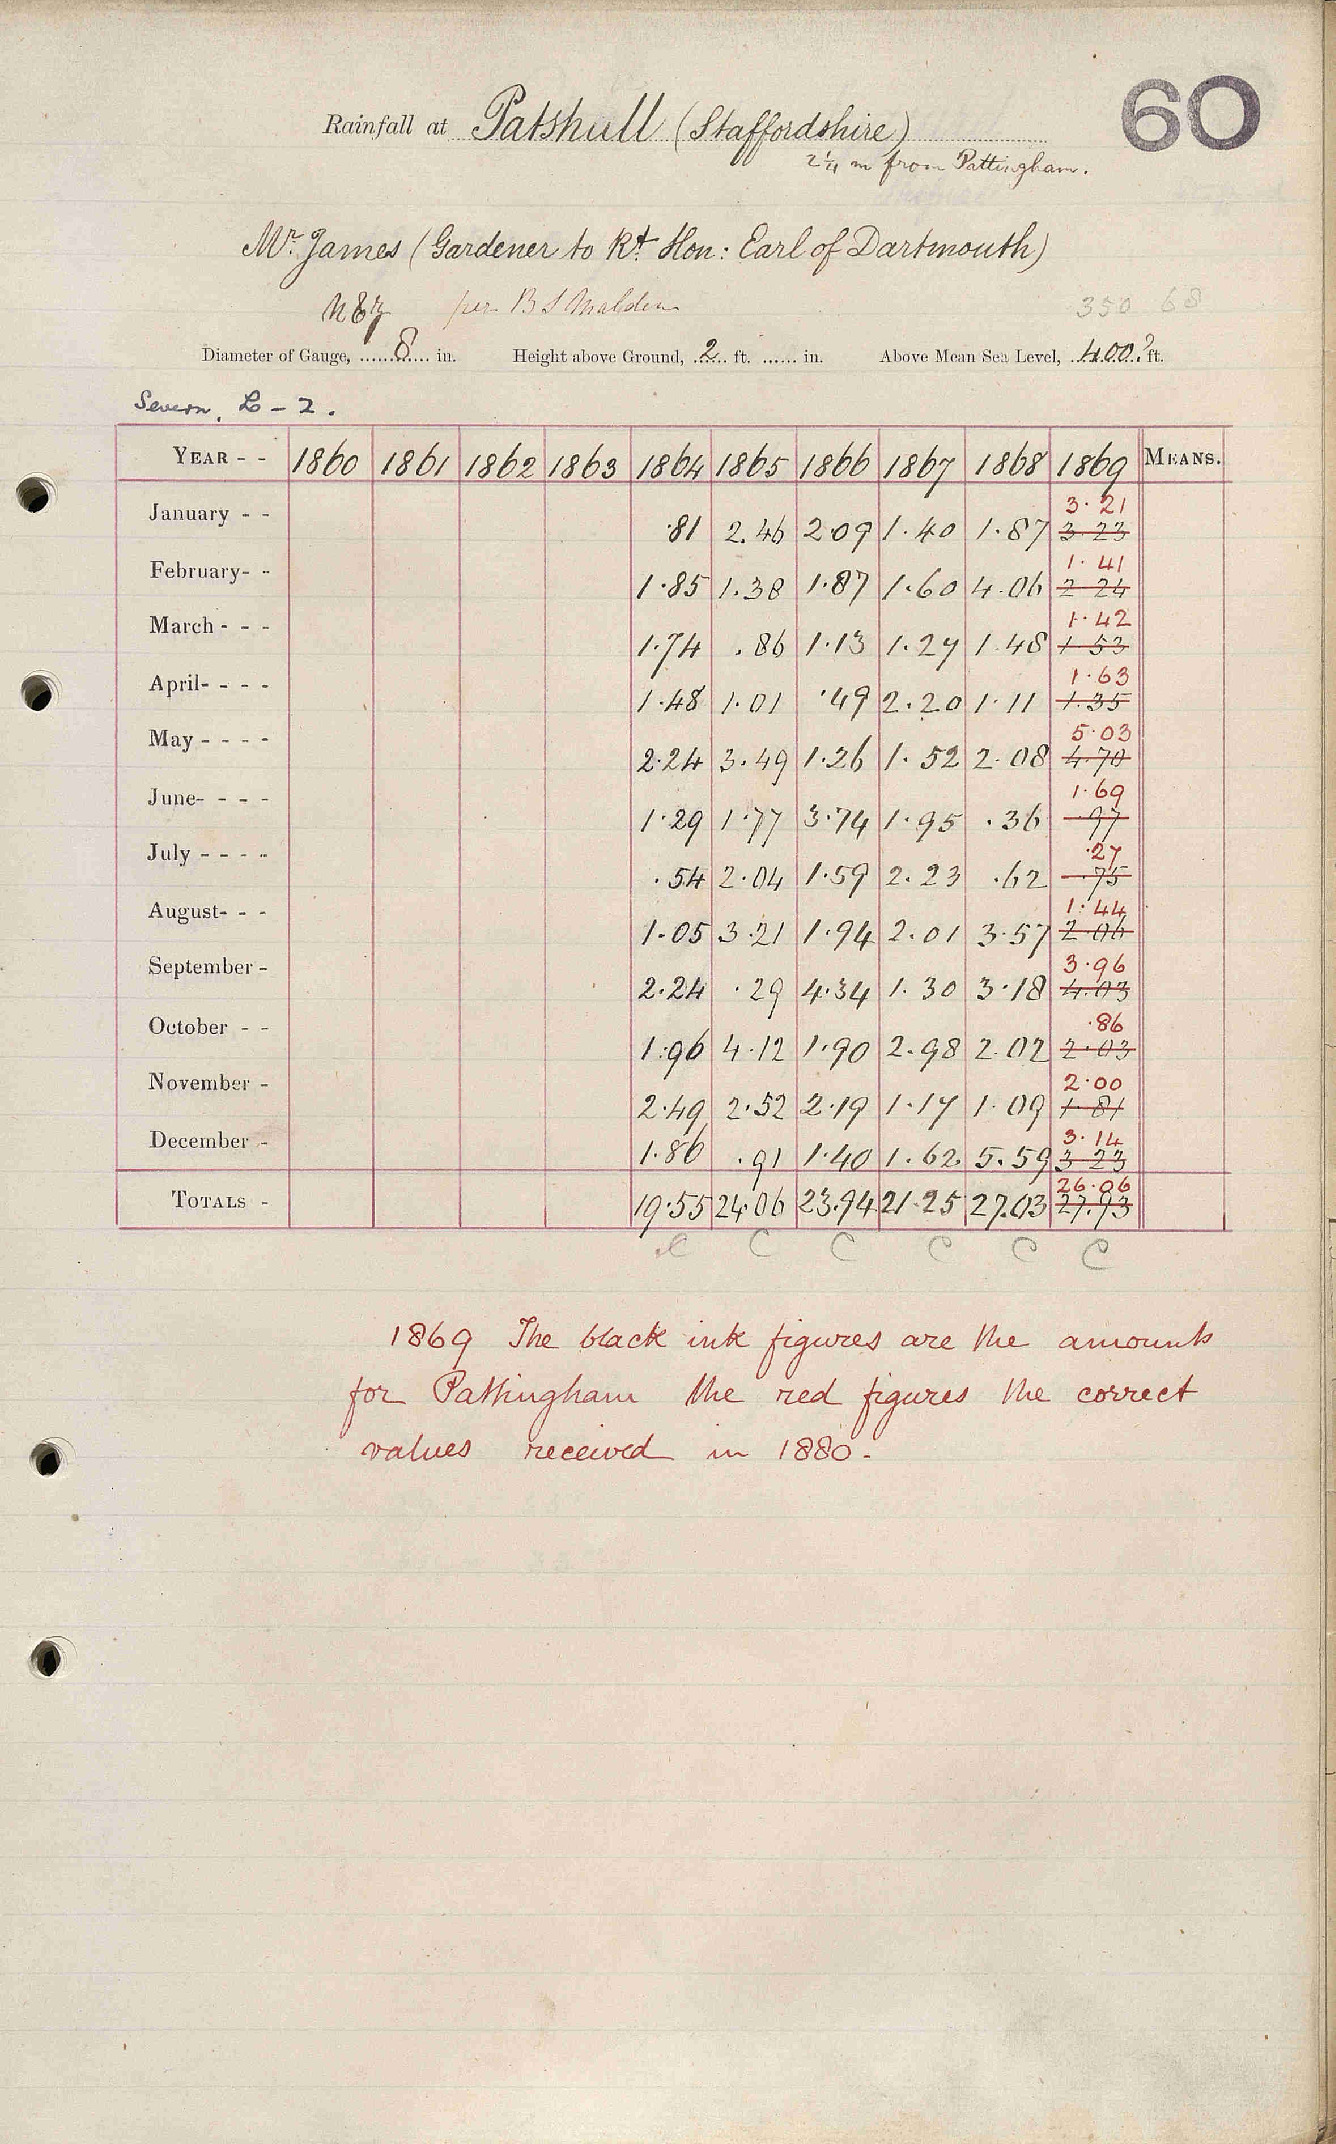 60
Rainfall at Patshull (Staffordshire)
2¼ m from Pattingham.
Mr. James (Gardener to Rt Hon: Earl of Dartmouth)
per B S Malden
350 68
Diameter of Gauge, 8 in. Height above Ground, 2 ft. in. Above Mean Sea Level, 400? ft.
Severn, L - 2.
YEAR - - 1860 1861 1862 1863 1864 1865 1866 1867 1868 1869 MEANS.
3.21
January - - .81 2.46 2.09 1.40 1.87 3.23
1.41
February- - 1.85 1.38 1.87 1.60 4.06 2.24
1.42
March - - - 1.74 .86 1.13 1.27 1.48 1.53
1.63
April- - - - 1.48 1.01 .49 2.20 1.11 1.35
5.03
May - - - - 2.24 3.49 1.26 1.52 2.08 4.70
1.69
June- - - - 1.29 1.77 3.74 1.95 .36 .97
.27
July - - - - .54 2.04 1.59 2.23 .62 .75
1.44
August- - - 1.05 3.21 1.94 2.01 3.57 2.06
3.96
September - 2.24 .29 4.34 1.30 3.18 4.03
.86
October - - 1.96 4.12 1.90 2.98 2.02 2.03
2.00
November - 2.49 2.52 2.19 1.17 1.09 1.81
3.14
December - 1.86 .91 1.40 1.62 5.59 3.23
26.06
TOTALS - 19.55 24.06 23.94 21.25 27.03 27.93
C C C C C C
1869 The black ink figures are the amounts
for Pattingham the red figures the correct
values received in 1880.